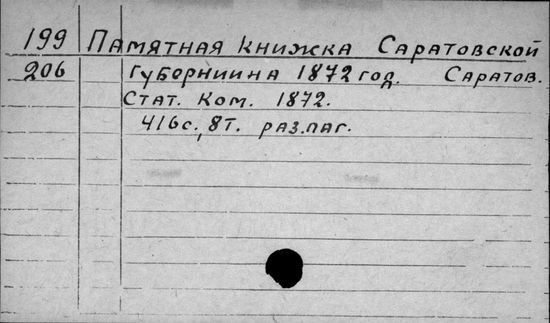 199 Памятная книжка Саратовской
206 Губерниина 1872 год. Саратов.
Стат. Ком. 1872.
416с., 8т. раз.паг.